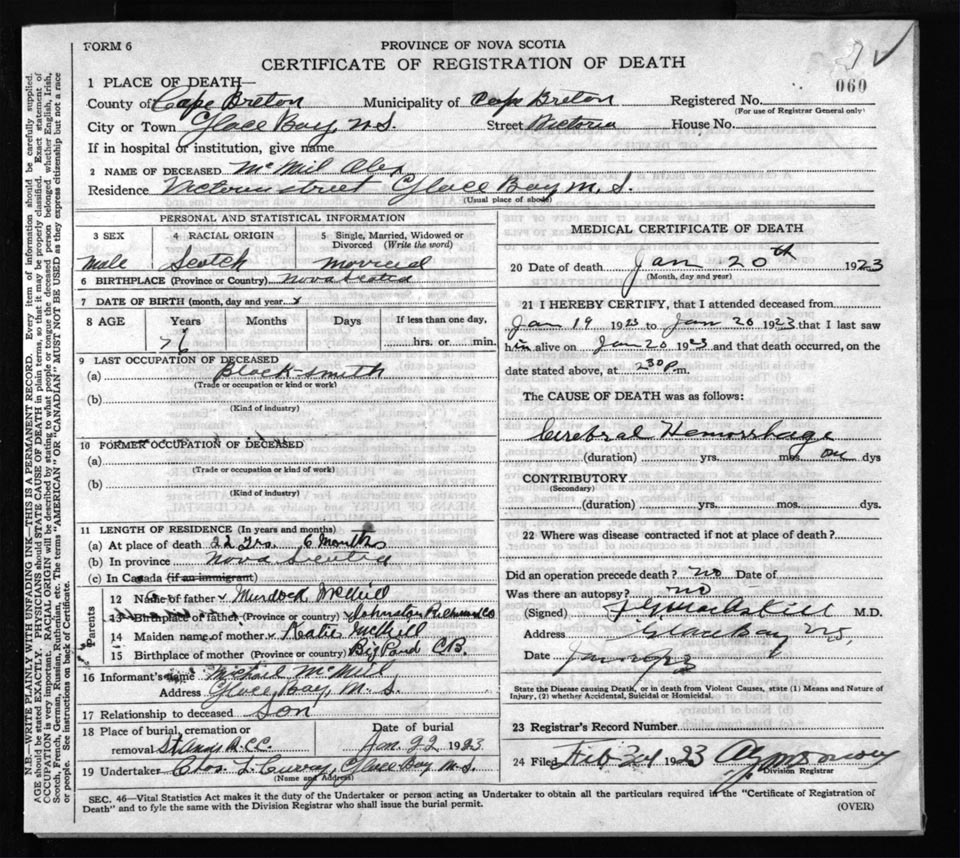 FORM 6
PROVINCE OF NOVA SCOTIA
CERTIFICATE OF REGISTRATION OF DEATH
060
1 PLACE OF DEATH—
County of Cape Breton Municipality of Cape Breton Registered No.
(For use of Registrar General only)
City or Town Glace Bay, N.S. Street Victoria House No.
If in hospital or institution, give name
2 NAME OF DECEASED McNiel Alex
Residence Victoria street Glace Bay N. S.
(Usual place of abode)
PERSONAL AND STATISTICAL INFORMATION
3 SEX
Male
4 RACIAL ORIGIN
Scotch
5 Single, Married, Widowed or Divorced (Write the word)
Married
6 BIRTHPLACE (Province or Country) Nova Scotia
7 DATE OF BIRTH (month, day and year)
8 AGE Years Months Days If less than one day,
76 hrs. or min.
9 LAST OCCUPATION OF DECEASED
(a) Black-smith
(Trade or occupation or kind or work)
(b)
(Kind of industry)
10 FORMER OCCUPATION OF DECEASED
(a)
(Trade or occupation or kind or work)
(b)
(Kind of industry)
11 LENGTH OF RESIDENCE (In years and months)
(a) At place of death 22 Yrs. 6 Months
(b) In province Nova Scotia
(c) In Canada (if an immigrant)
Parents
12 Name of father Murdock McNeil
13 Birthplace of father (Province or country) Johnston Richmond Co
14 Maiden name of mother Katie McNeil
15 Birthplace of mother (Province or country) Big Pond C.B.
16 Informant's name Michael McNeil
Address Glace Bay, N. S.
17 Relationship to deceased Son
18 Place of burial, cremation or removal St Anns R.C.C. Date of burial Jan. 22 1923
19 Undertaker Chas L. Curry, Glace Bay N.S.
(Name and Address)
MEDICAL CERTIFICATE OF DEATH
20 Date of death Jan 20th 1923
(Month, day and year)
21 I HEREBY CERTIFY, that I attended deceased from
Jan 19 1923 to Jan 20 1923 that I last saw
him alive on Jan 20 1923 and that death occurred, on the
date stated above, at 2 30 P.m.
The CAUSE OF DEATH was as follows:
Cerebral Hemorrhage
(duration) yrs. mos. one dys
CONTRIBUTORY
(Secondary)
(duration) yrs. mos. dys.
22 Where was disease contracted if not at place of death?
Did an operation precede death? no Date of
Was there an autopsy? no
(Signed) M.D.
Address Glace Bay N.S.
Date
State the Disease causing Death, or in death from Violent Causes, state (1) Means and Nature of Injury, (2) whether Accidental, Suicidal or Homicidal.
23 Registrar's Record Number
24 Filed Feb 24 1923
Division Registrar
SEC. 46—Vital Statistics Act makes it the duty of the Undertaker or person acting as Undertaker to obtain all the particulars required in the "Certificate of Registration of
Death" and to fyle the same with the Division Registrar who shall issue the burial permit.
(OVER)
N.B.—WRITE PLAINLY WITH UNFADING INK—THIS IS A PERMANENT RECORD. Every item of information should be carefully supplied.
AGE should be stated EXACTLY. PHYSICIANS should STATE CAUSE OF DEATH in plain terms, so that it may be properly classified. Exact statement of
OCCUPATION is very important. RACIAL ORIGIN will be described by stating to what people or tongue the deceased person belonged whether English, Irish,
Scotch, French, German, Russian, Ruthenian, etc. The terms "AMERICAN" OR "CANADIAN" MUST NOT BE USED as they express citizenship but not a race
or people. See instructions on back of Certificate.